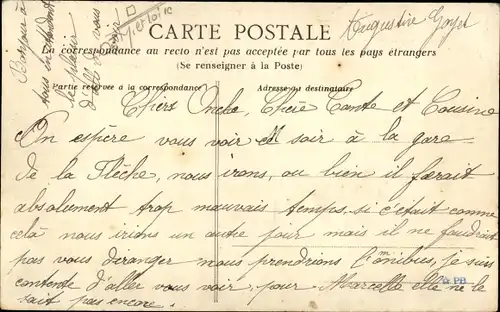 Bonjour à
tous en attendant
le plaisir
d'all de vous
Augustine
CARTE POSTALE
La correspondance au recto n'est pas acceptée par tous les pays étrangers
(Se renseigner à la Poste)
Partie réservée à la correspondance
Adresse au destinataire
Chers Oncle, Chère Tante et Cousine
On espère vous voir ce soir à la gare
de la Flèche, nous irons, ou bien il faerait
absolument trop mauvais temps, si c'était comme
celà nous irions un autre jour mais il ne faudrait
pas vous déranger nous prendrions l'omnibus, je suis
contente d'aller vous voir, pour Marcelle elle ne le
sait pas encore.
PB